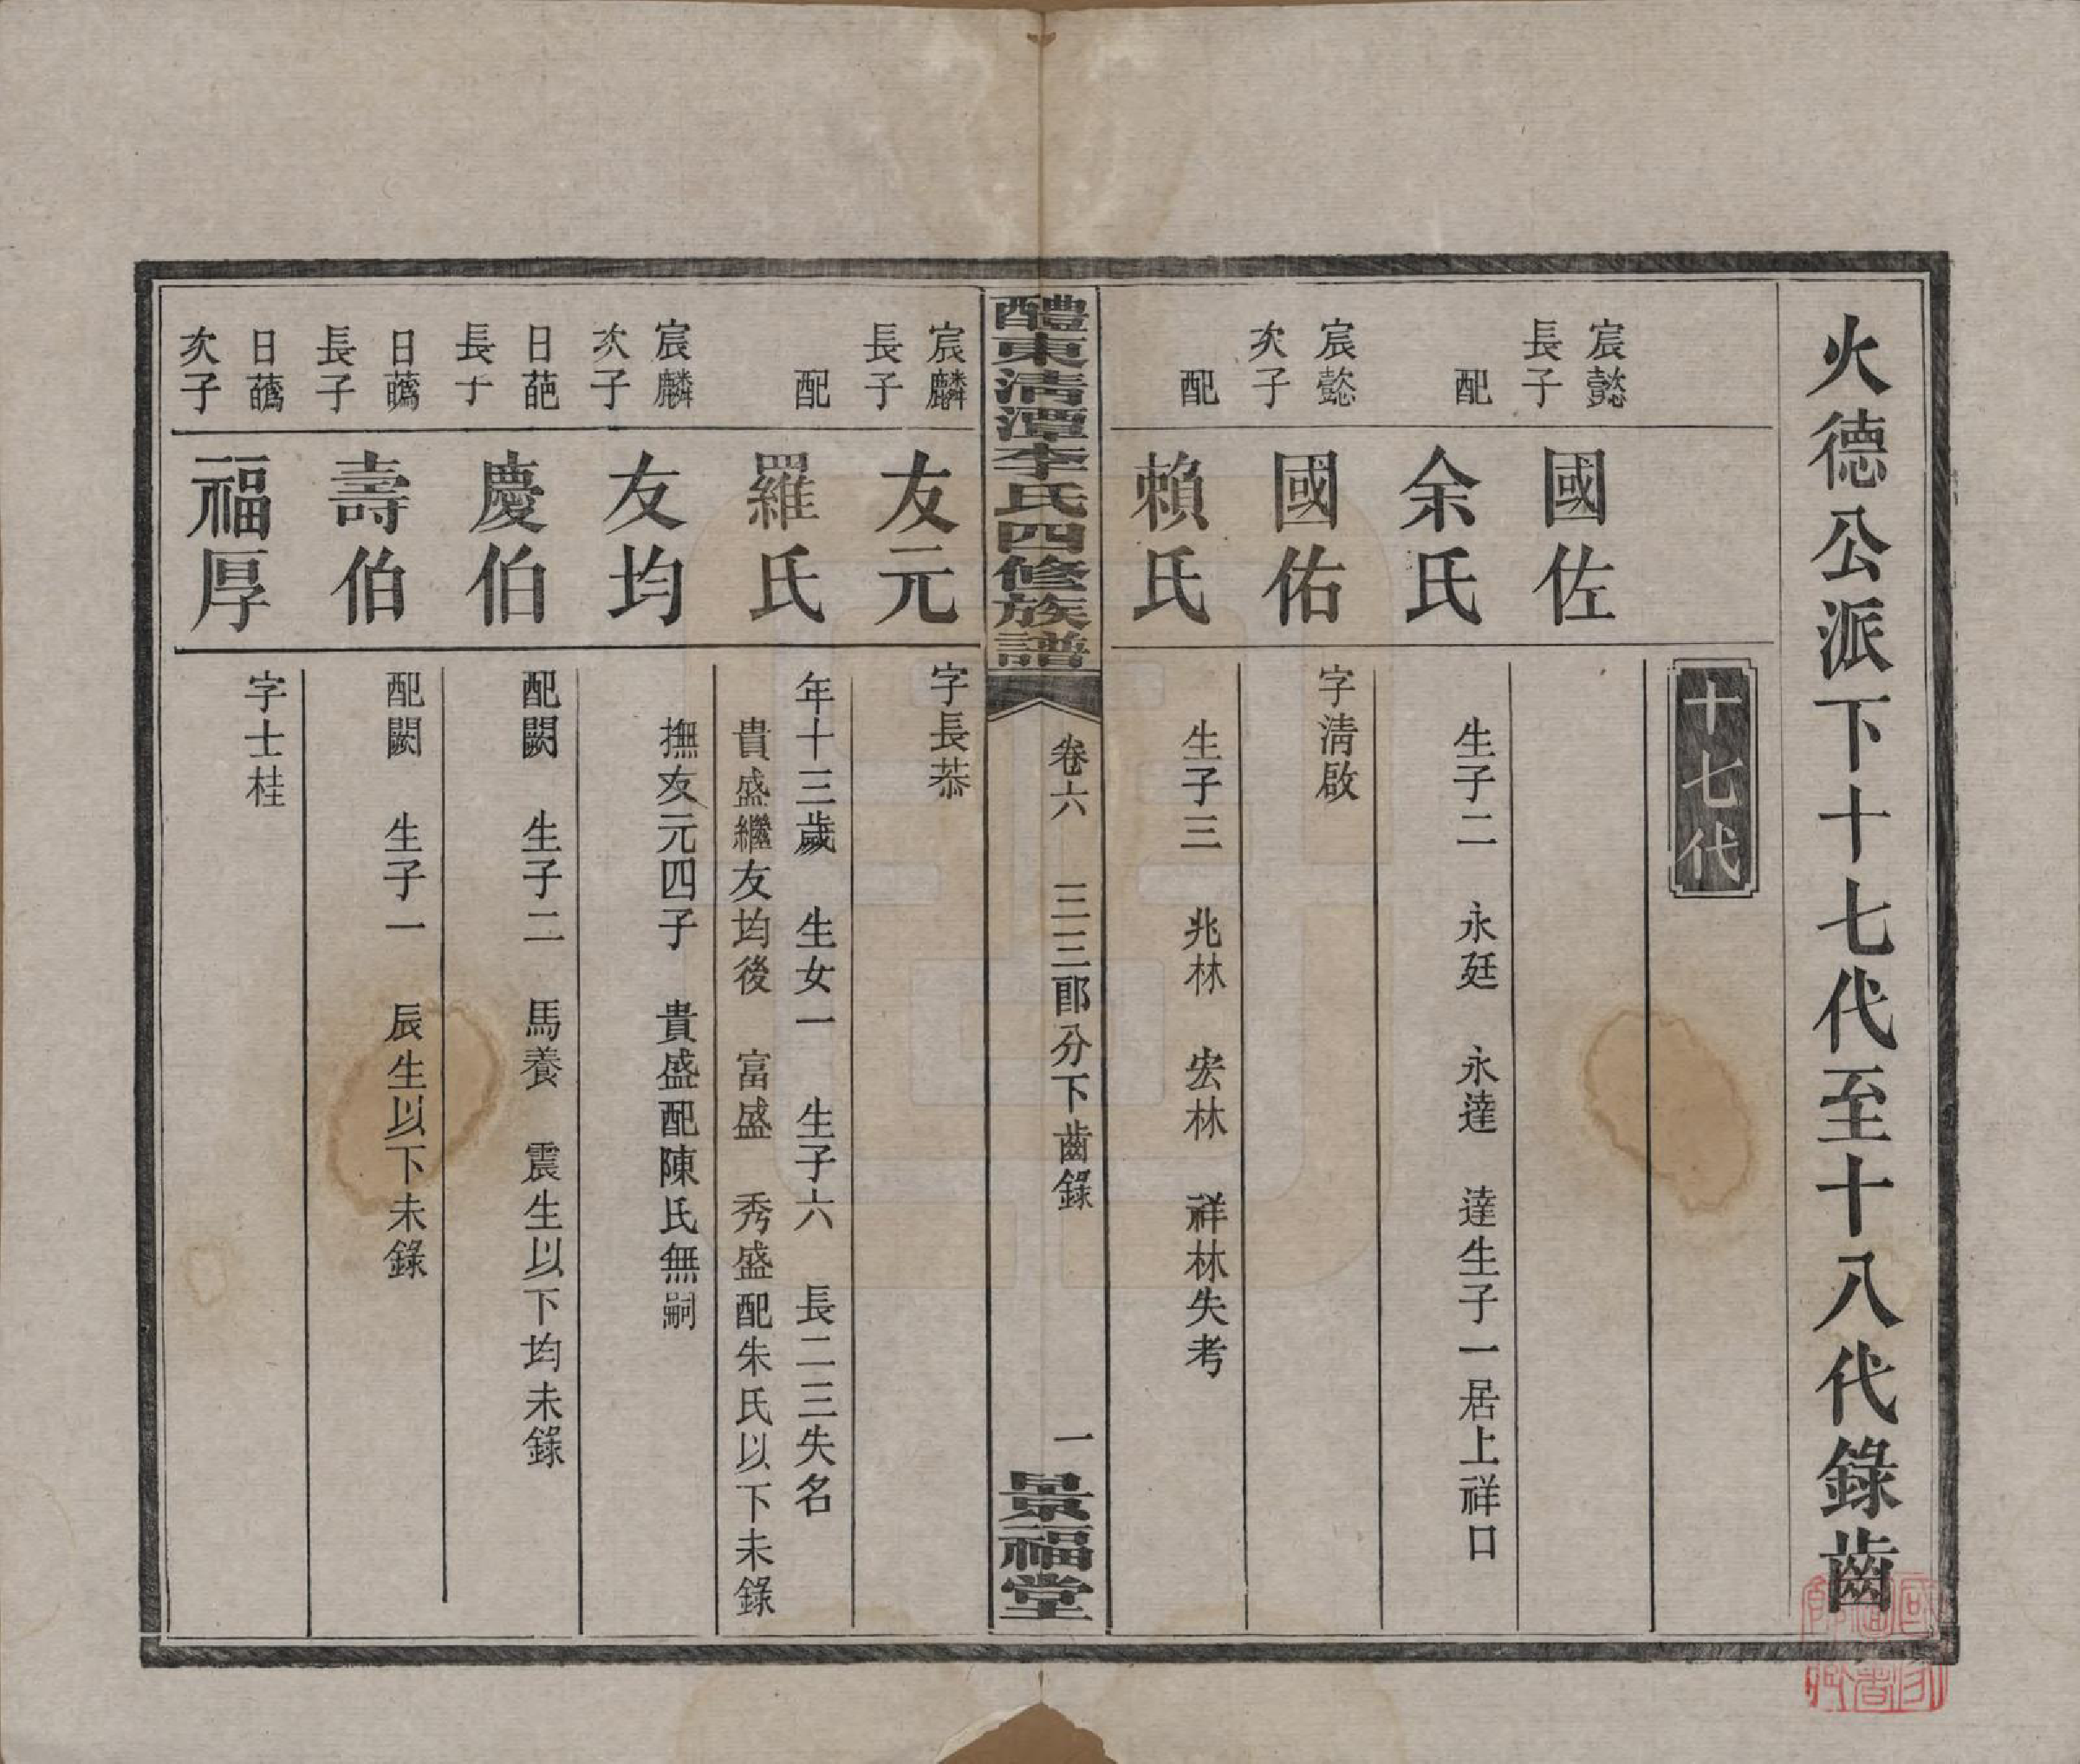 火德公派下十七代至十八代錄齒
十七代
宸懿
長子
國佐
配
余氏
生子二　永廷　永達　達生子一居上祥口
宸懿
次子
國佑
字淸啟
配
賴氏
生子三　兆林　宏林　祥林失考
醴東淸潭李氏四修族譜
卷六　三三郎分下齒錄
一
景福堂
宸麟
長子
友元
字長恭
配
羅氏
年十三歲　生女一　生子六　長二三失名
貴盛繼友均後　富盛　秀盛配朱氏以下未錄
宸麟
次子
友均
撫友元四子　貴盛配陳氏無嗣
日葩
長子
慶伯
配闕　生子二　馬養　震生以下均未錄
日藹
長子
壽伯
配闕　生子一　辰生以下未錄
日藹
次子
福厚
字士桂